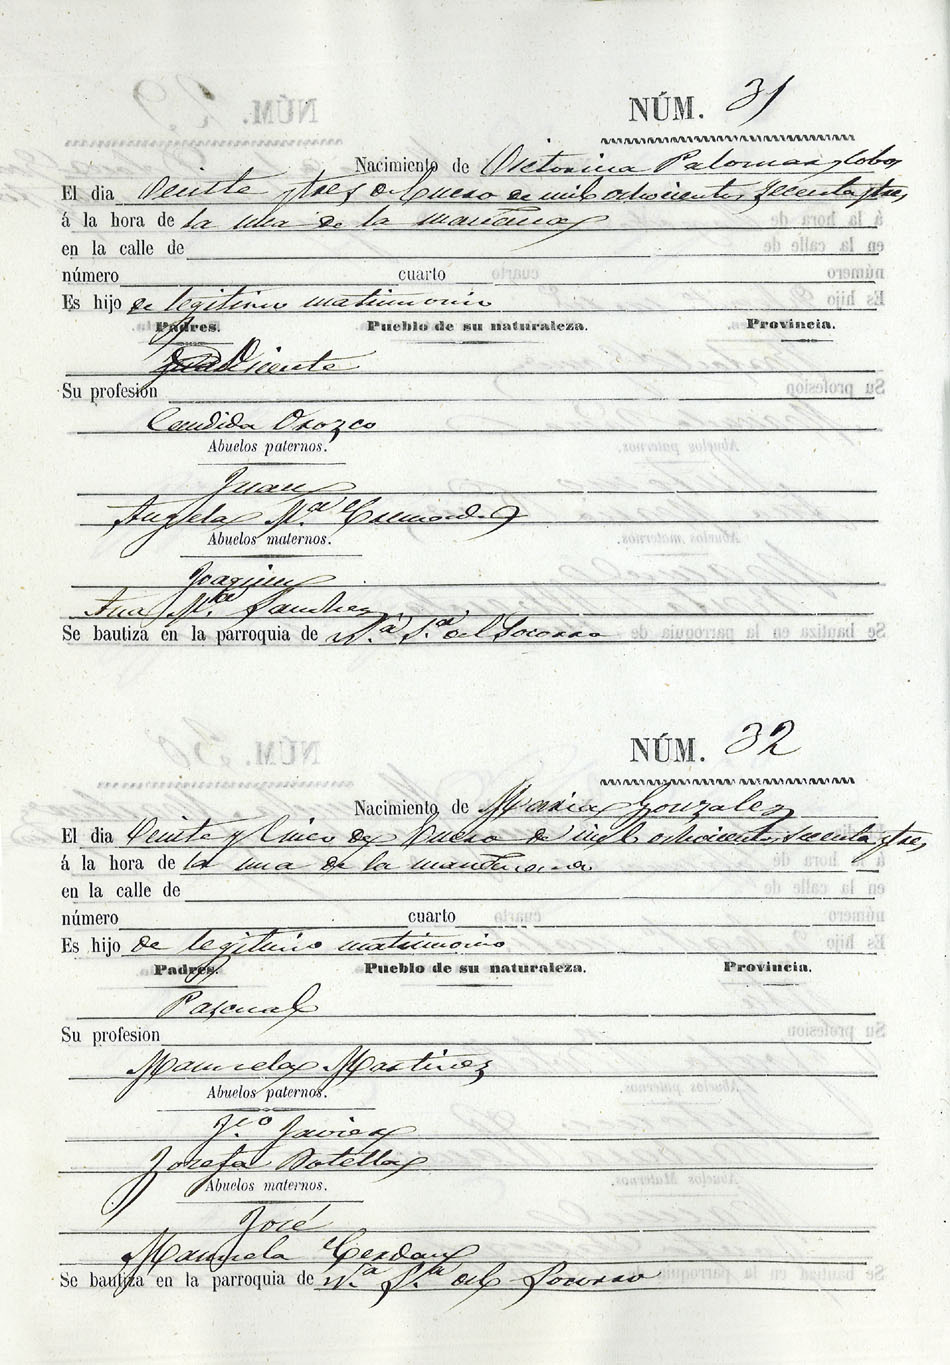 NÚM. 31
Nacimiento de Victorina Palomar y Cobos
El dia Veinte y tres de Enero de mil ochocientos secenta y tres
á la hora de la una de la mañana
en la calle de
número cuarto
Es hijo de legitimo matrimonio
Padres. Pueblo de su naturaleza. Provincia.
Vicente
Su profesión
Candida Orozco
Abuelos paternos.
Juan
Angela M.ª
Abuelos maternos.
Joaquin
Ana M.ª Sanchez
Se bautiza en la parroquia de N.ª S.ª del Socorro
NÚM. 32
Nacimiento de Maria Gonzalez
El dia Veinte y Cinco de Enero de mil ochocientos secenta y tres
á la hora de la una de la
en la calle de
número cuarto
Es hijo de legitimo matrimonio
Padres. Pueblo de su naturaleza. Provincia.
Pascual
Su profesion
Manuela Martinez
Abuelos paternos.
Fco Javier
Josefa Botella
Abuelos maternos.
José
Manuela Cerdan
Se bautiza en la parroquia de N.ª S.ª del Socorro